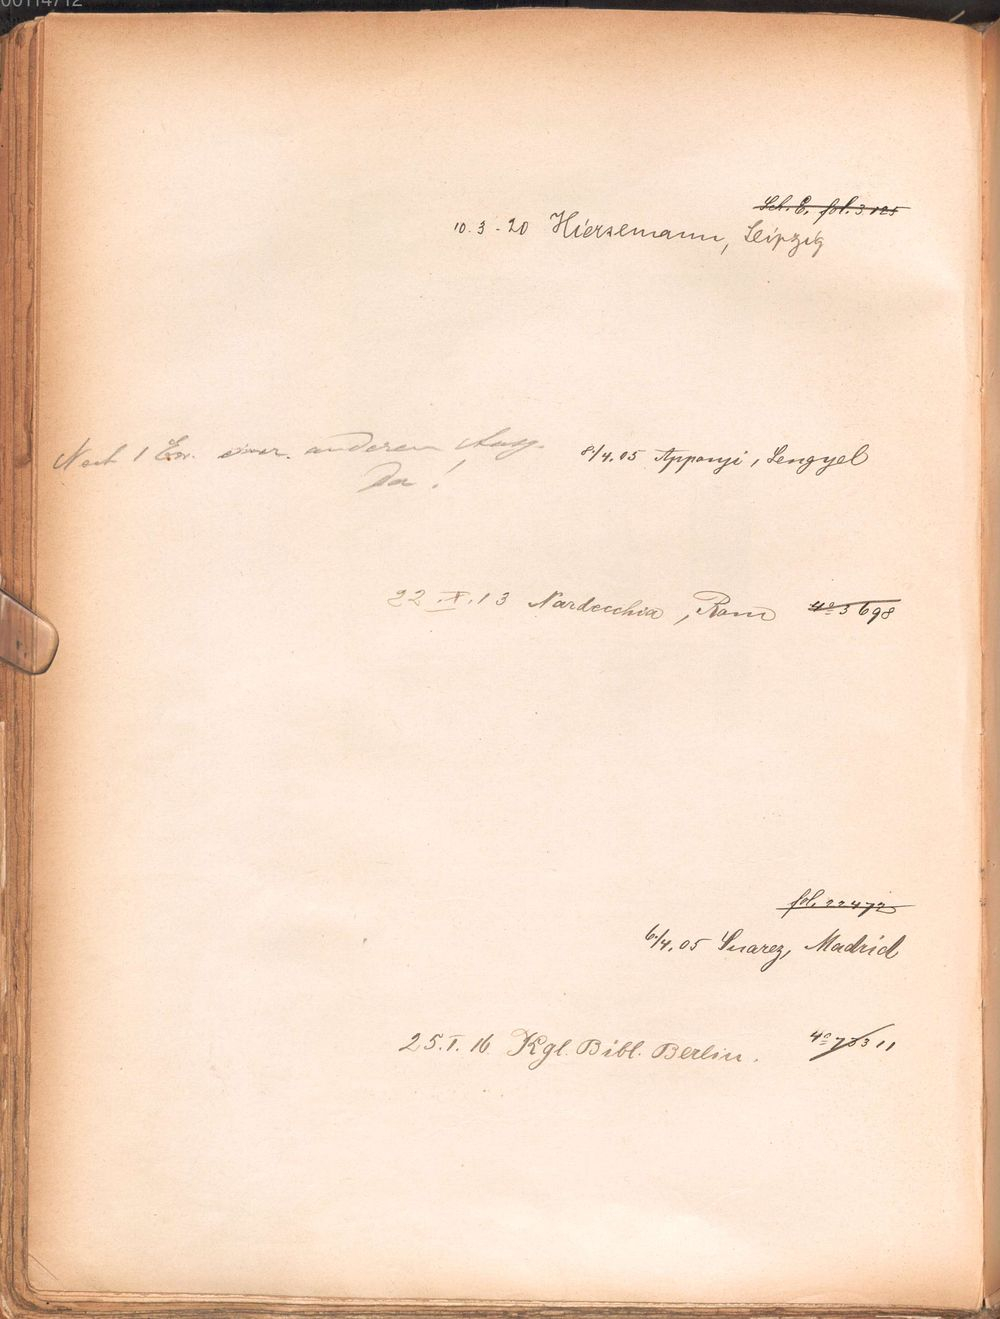 00114712
Sch. E. fol. 3 125
10. 3 - 20 Hiersemann, Leipzig
Noch 1 Ex. einer anderen Ausg.
da!
8/4. 05 Apponyi, Lengyel
22. X. 13 Nardecchia, Rom 4º 3 698
fol. 22472
6/4. 05 Suarez, Madrid
25. I. 16 Kgl. Bibl. Berlin. 4º 7 3311